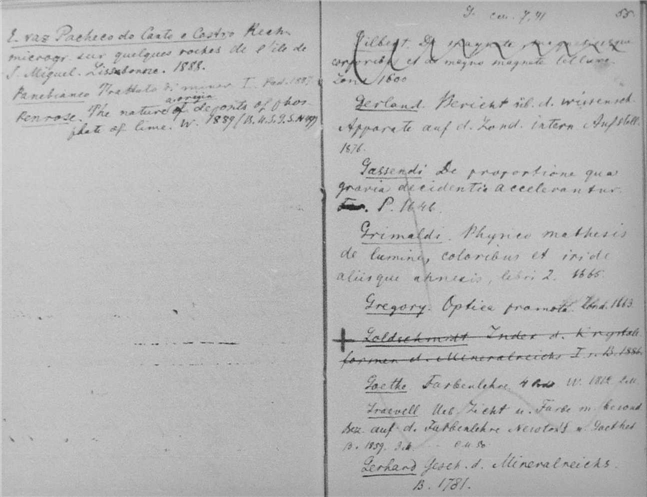 E. Vaz Pacheco do Canto e Castro Rech.
microgr. sur quelques roches de l'ile de
S. Miguel. Lissabonne. 1888.
Panebianco Trattato di miner I. Pad. 1887
Penrose. The nature a. origin of deposits of phos
phate of lime. W. 1889 (B. U. S. G. S. N 46)
55
Gilbert. De magnete magneticisque
corporibus et de magno magnete tellure
Lon. 1600
Gerland. Bericht üb. d. wissensch.
Apparate auf d. Lond. intern. Ausstell.
1876.
Gassendi De proportione qua
gravia decidentia accelerantur.
P. 1646.
Grimaldi. Physico mathesis
de lumine, coloribus et iride
aliisque annexis, libri 2. 1665.
Gregory. Optica promota. Lond. 1663.
Goldschmidt Index d. Krystall
formen d. Mineralreichs I. B. 1886.
Goethe Farbenlehre 4 W. 1812.
Ueb. Licht u. Farbe m. besond
Bez. auf d. Farbenlehre Newton's u. Goethes
B. 1859.
Gerhard Gesch. d. Mineralreichs.
B. 1781.